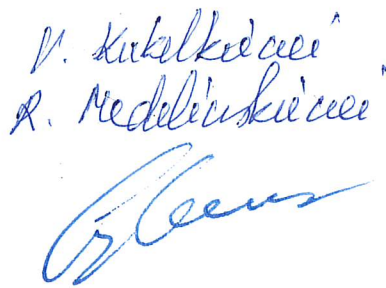 V. Kukelkienei
R. Medelinskienei